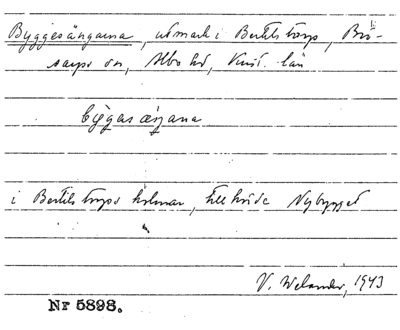 Byggesängarna, utmark i Bertilstorp, Brö-
sarps sn, Albo hd, Krist. län
byg̀gasæŋ́ana
i Bertilstorps holmar, tillhörde Nybygget
V. Welander, 1943
Nr 5898.